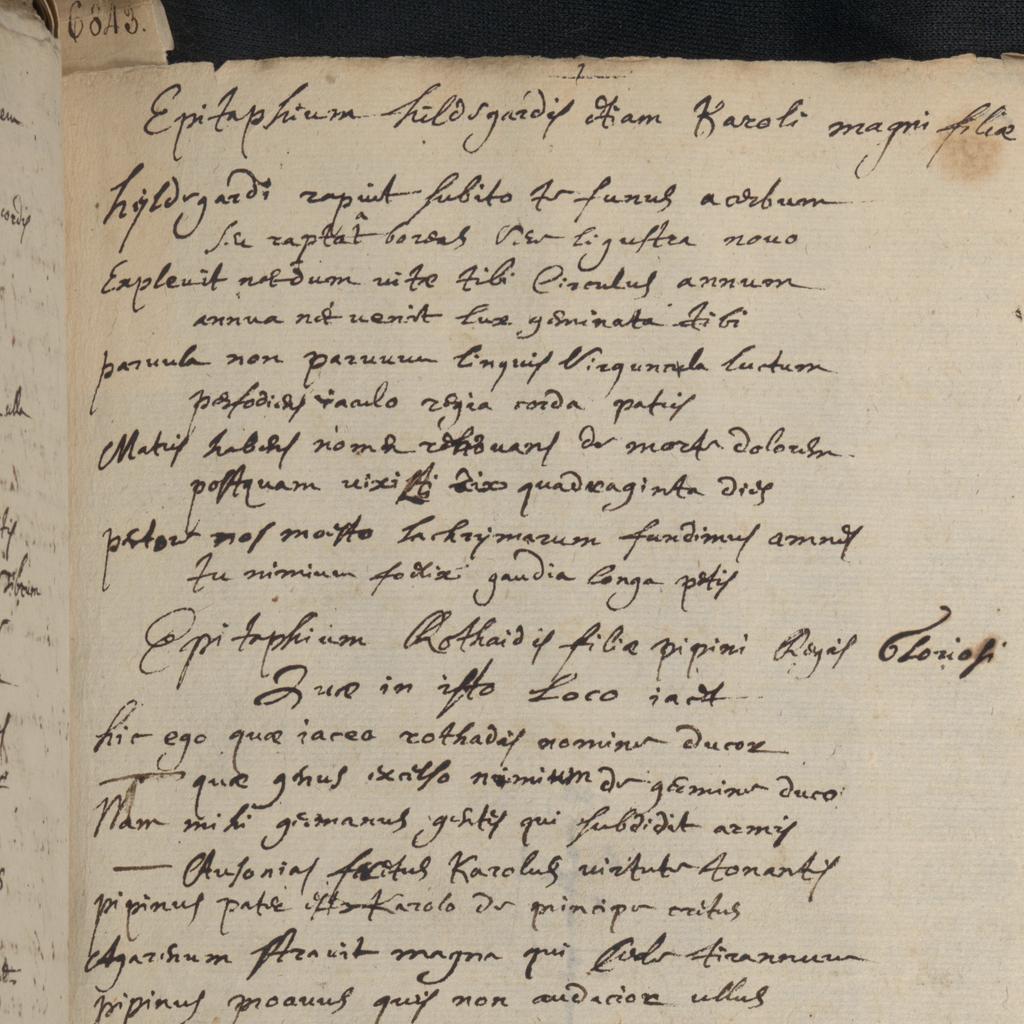 6843.
Epitaphium hildegardis etiam Karoli magni filiæ
hÿldegardi rapuit subito te funus acerbum
seu raptât boreas Vere ligustra novo
Explevit necdum vitæ tibi Circulus annum
annua nec venit lux geminata tibi
parvula non parvum linquis Virguncula luctum
perfodiens iaculo regia corda patris
Matris habens nomen renovans de morte dolorem
postquam vixisti vix quadraginta dies
pectore nos moesto lachrÿmarum fundimus amnes
tu nimium foelix gaudia longa petis
Epitaphium Rothaidis filiæ pipini Regis Gloriosi
Quæ in isto Loco iacet
hic ego quæ iaceo rothadis nomine ducor
quæ genus excelso nimium de germine duco
Nam mihi germanus gentes qui subdidit armis
Ausonias fretus Karolus virtute tonantis
pipinus pater est Karolo de principe cretus
Agarenum stravit magna qui Cede tirannum
pipinus proavus quis non audacior ullus